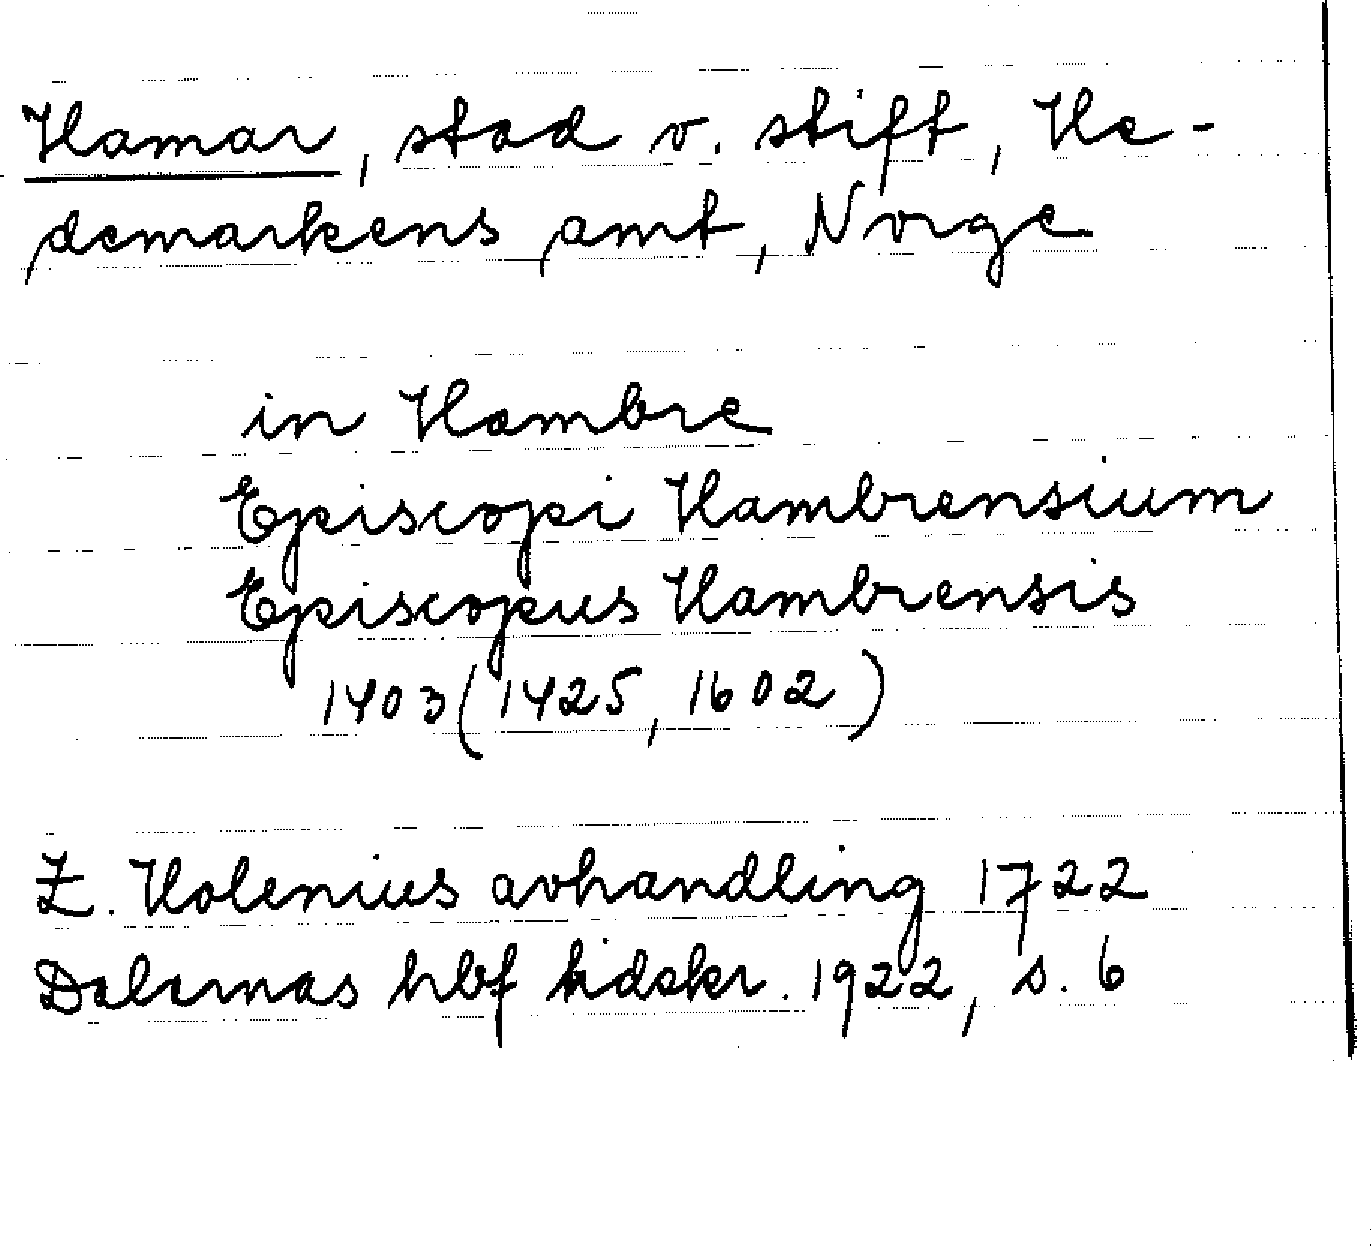 Hamar, stad o. stift, He-
demarkens amt, Norge
in Hambre
Episcopi Hambrensium
Episcopus Hambrensis
1403 (1425, 1602)
Z. Holenius avhandling 1722
Dalarnas hbf tidskr. 1922, s. 6